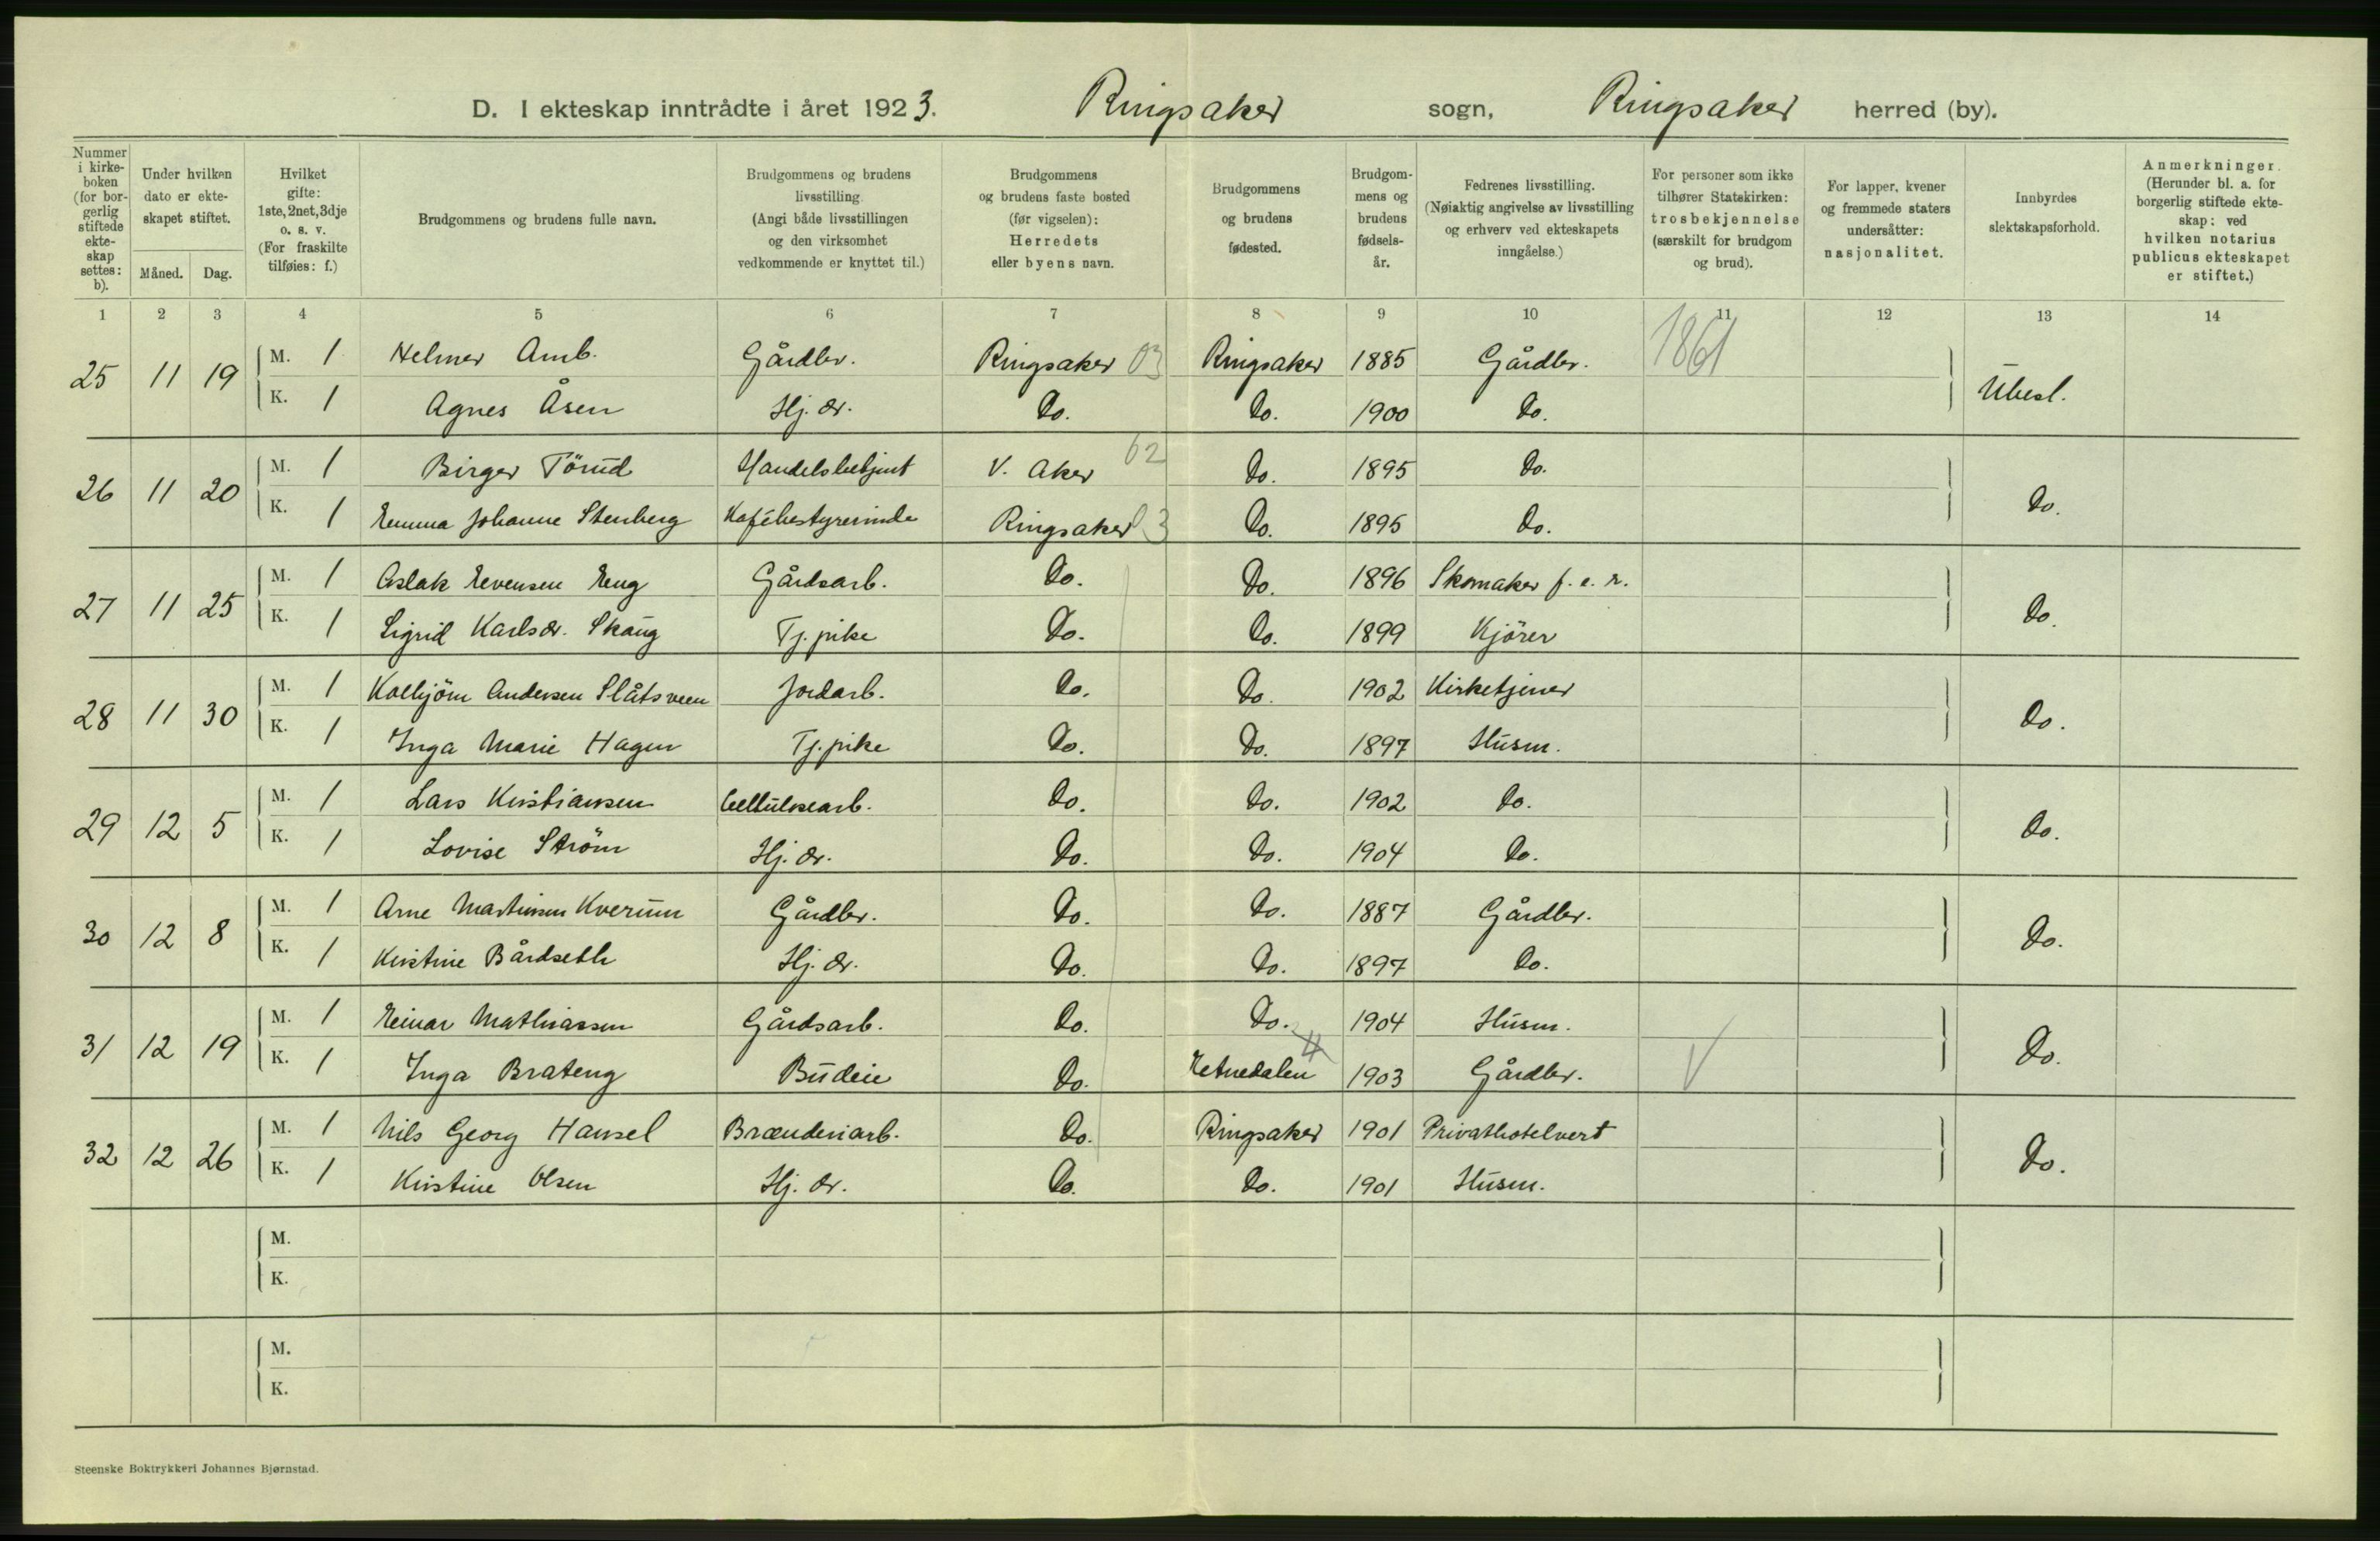 D. I ekteskap inntrådte i året 1923. Ringsaker sogn, Ringsaker herred (by).
Nummer i kirkeboken (for borgerlig stiftede ekteskap settes: b).
Under hvilken dato er ekteskapet stiftet.
Måned. Dag.
Hvilket gifte: 1ste, 2net, 3dje o. s. v. (For fraskilte tilføies: f.)
Brudgommens og brudens fulle navn.
Brudgommens og brudens livsstilling. (Angi både livsstillingen og den virksomhet vedkommende er knyttet til.)
Brudgommens og brudens faste bosted (før vigselen): Herredets eller byens navn.
Brudgommens og brudens fødested.
Brudgommens og brudens fødselsår.
Fedrenes livsstilling. (Nøiaktig angivelse av livsstilling og erhverv ved ekteskapets inngåelse.)
For personer som ikke tilhører Statskirken: trosbekjennelse (særskilt for brudgom og brud).
For lapper, kvener og fremmede staters undersåtter: nasjonalitet.
Innbyrdes slektskapsforhold.
Anmerkninger. (Herunder bl. a. for borgerlig stiftede ekteskap: ved hvilken notarius publicus ekteskapet er stiftet.)
1 2 3 4 5 6 7 8 9 10 11 12 13 14
25 11 19 M. 1 Helmer Amb. Gårdbr. Ringsaker 03 Ringsaker 1885 Gårdbr. 1861 Ubesl.
K. 1 Agnes Åsen Hj. dr. Do. Do. 1900 Do.
26 11 20 M. 1 Birger Törud Handelsbetjent V. Aker 02 Do. 1895 Do. Do.
K. 1 Emma Johanne Stenberg Kafébestyrerinde Ringsaker 3 Do. 1895 Do.
27 11 25 M. 1 Aslak Evensen Eng Gårdsarb. Do. Do. 1896 Skomaker f. e. r. Do.
K. 1 Sigrid Karlsdr. Skaug Tj. pike Do. Do. 1899 Kjörer
28 11 30 M. 1 Kolbjörn Andersen Slåtsveen Jordarb. Do. Do. 1902 Kirketjener Do.
K. 1 Inga Marie Hagen Tj. pike Do. Do. 1897 Husm.
29 12 5 M. 1 Lars Kristiansen Cellulosearb. Do. Do. 1902 Do. Do.
K. 1 Lovise Ström Hj. dr. Do. Do. 1904 Do.
30 12 8 M. 1 Arne Martinsen Kverum Gårdbr. Do. Do. 1887 Gårdbr. Do.
K. 1 Kristine Bårdseth Hj. dr. Do. Do. 1897 Do.
31 12 19 M. 1 Einar Mathiassen Gårdsarb. Do. Do. 1904 Husm. Do.
K. 1 Inga Brateng Budeie Do. Etnedalen 1903 Gårdbr.
32 12 26 M. 1 Nils Georg Hansel Brænderiarb. Do. Ringsaker 1901 Privathotelvert Do.
K. 1 Kristine Olsen Hj. dr. Do. Do. 1901 Husm.
M.
K.
M.
K.
Steenske Boktrykkeri Johannes Bjørnstad.